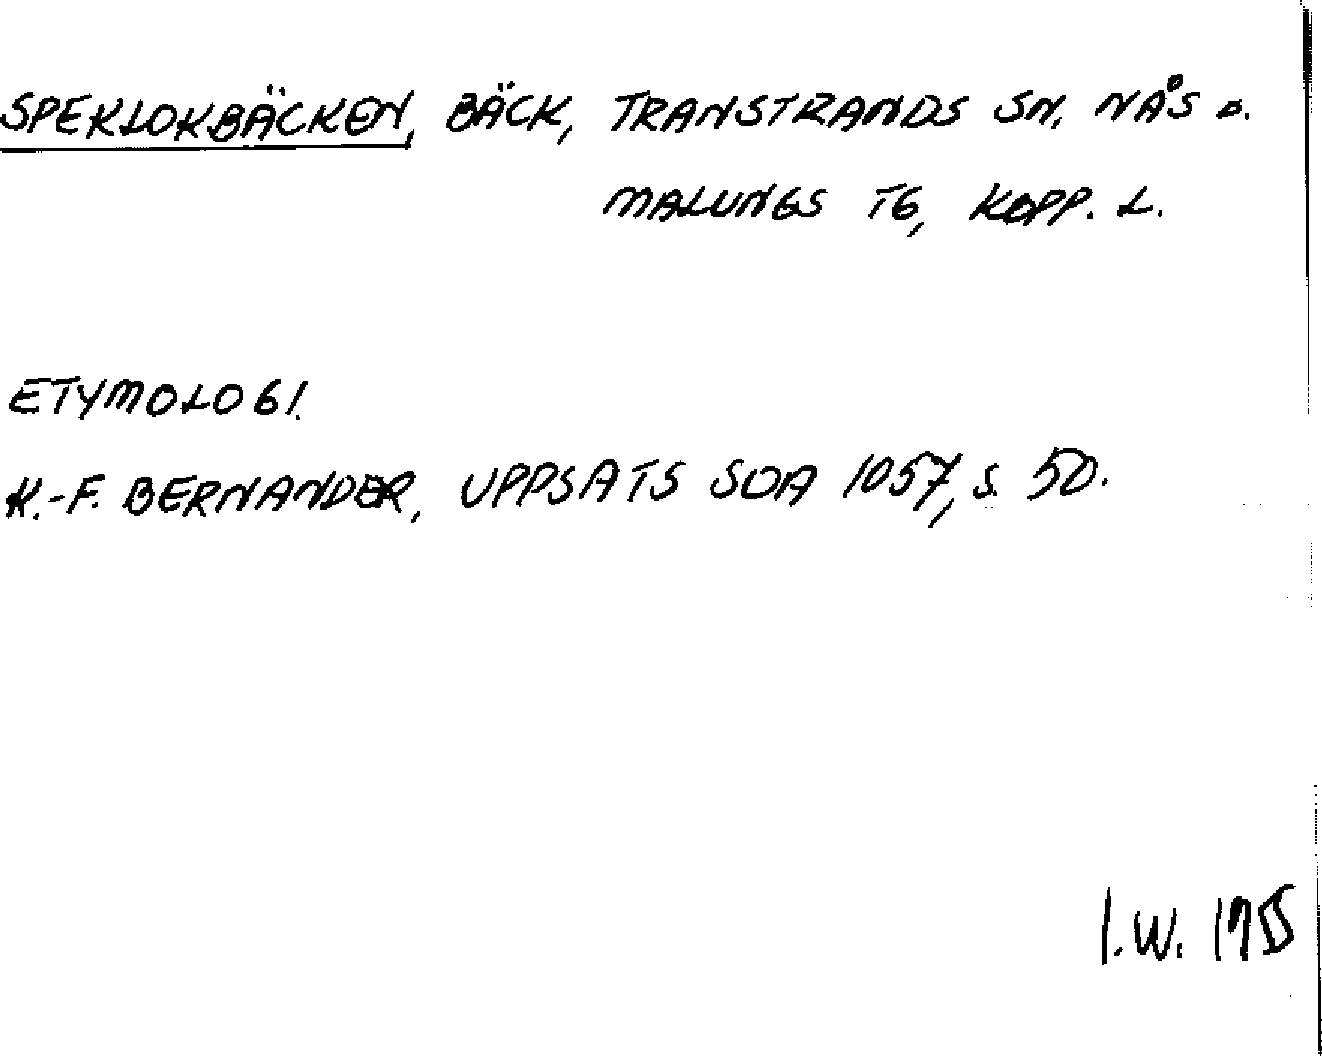 SPEKLOKBÄCKEN, BÄCK, TRANSTRANDS SN, NÅS O.
MALUNGS TG, KOPP. L.
ETYMOLOGI.
K.-F. BERNANDER, UPPSATS SOA 1057, S. 50.
I.W. 1955